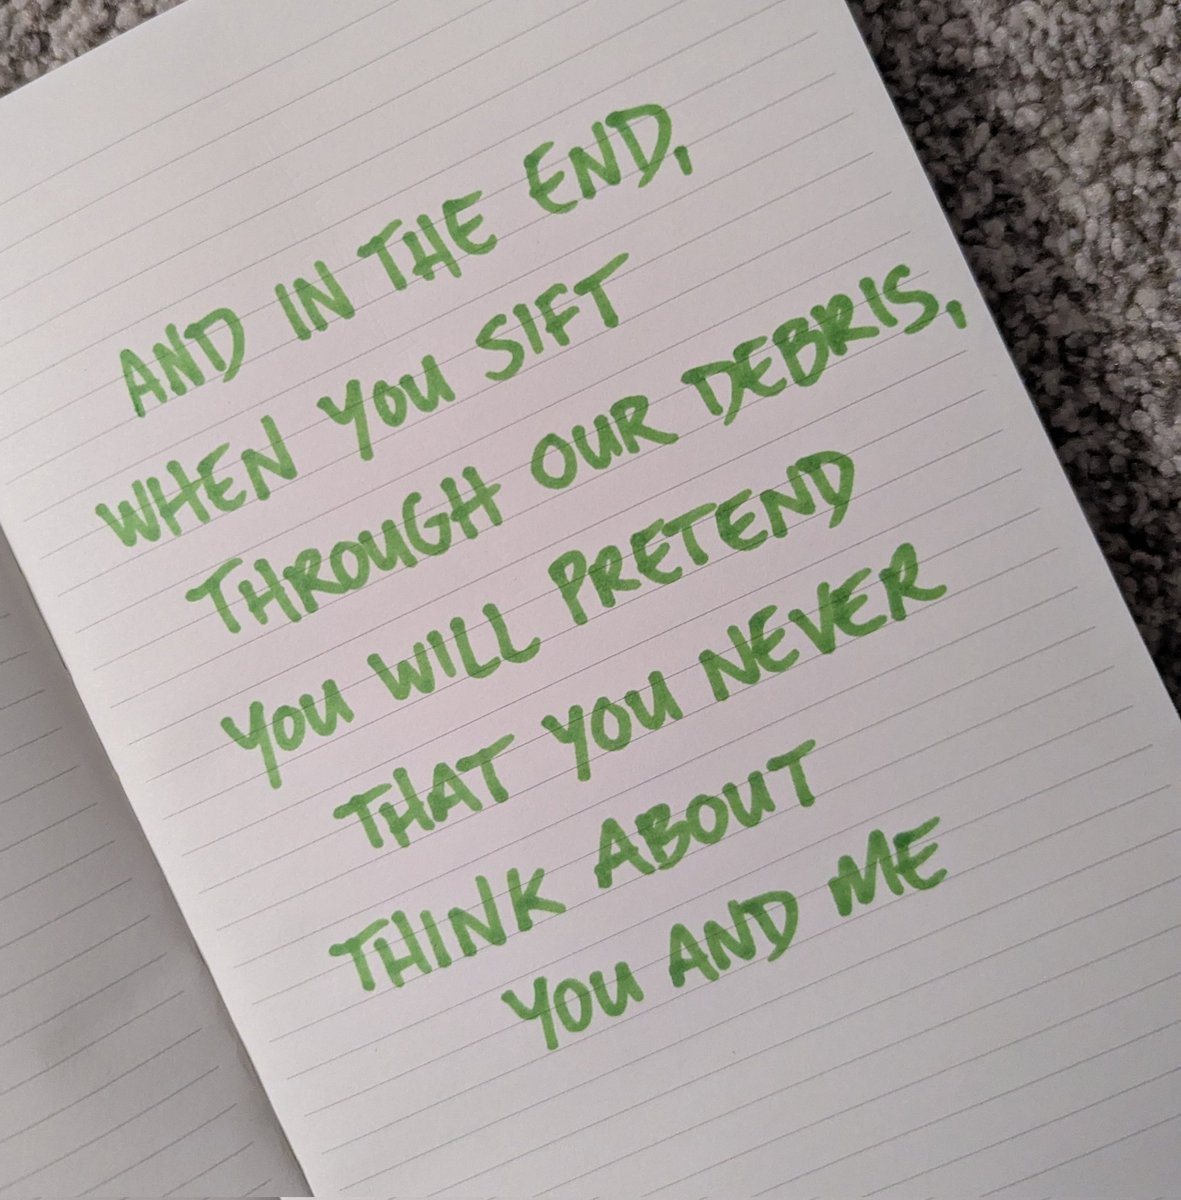 AND IN THE END,
WHEN YOU SIFT
THROUGH OUR DEBRIS,
YOU WILL PRETEND
THAT YOU NEVER
THINK ABOUT
YOU AND ME